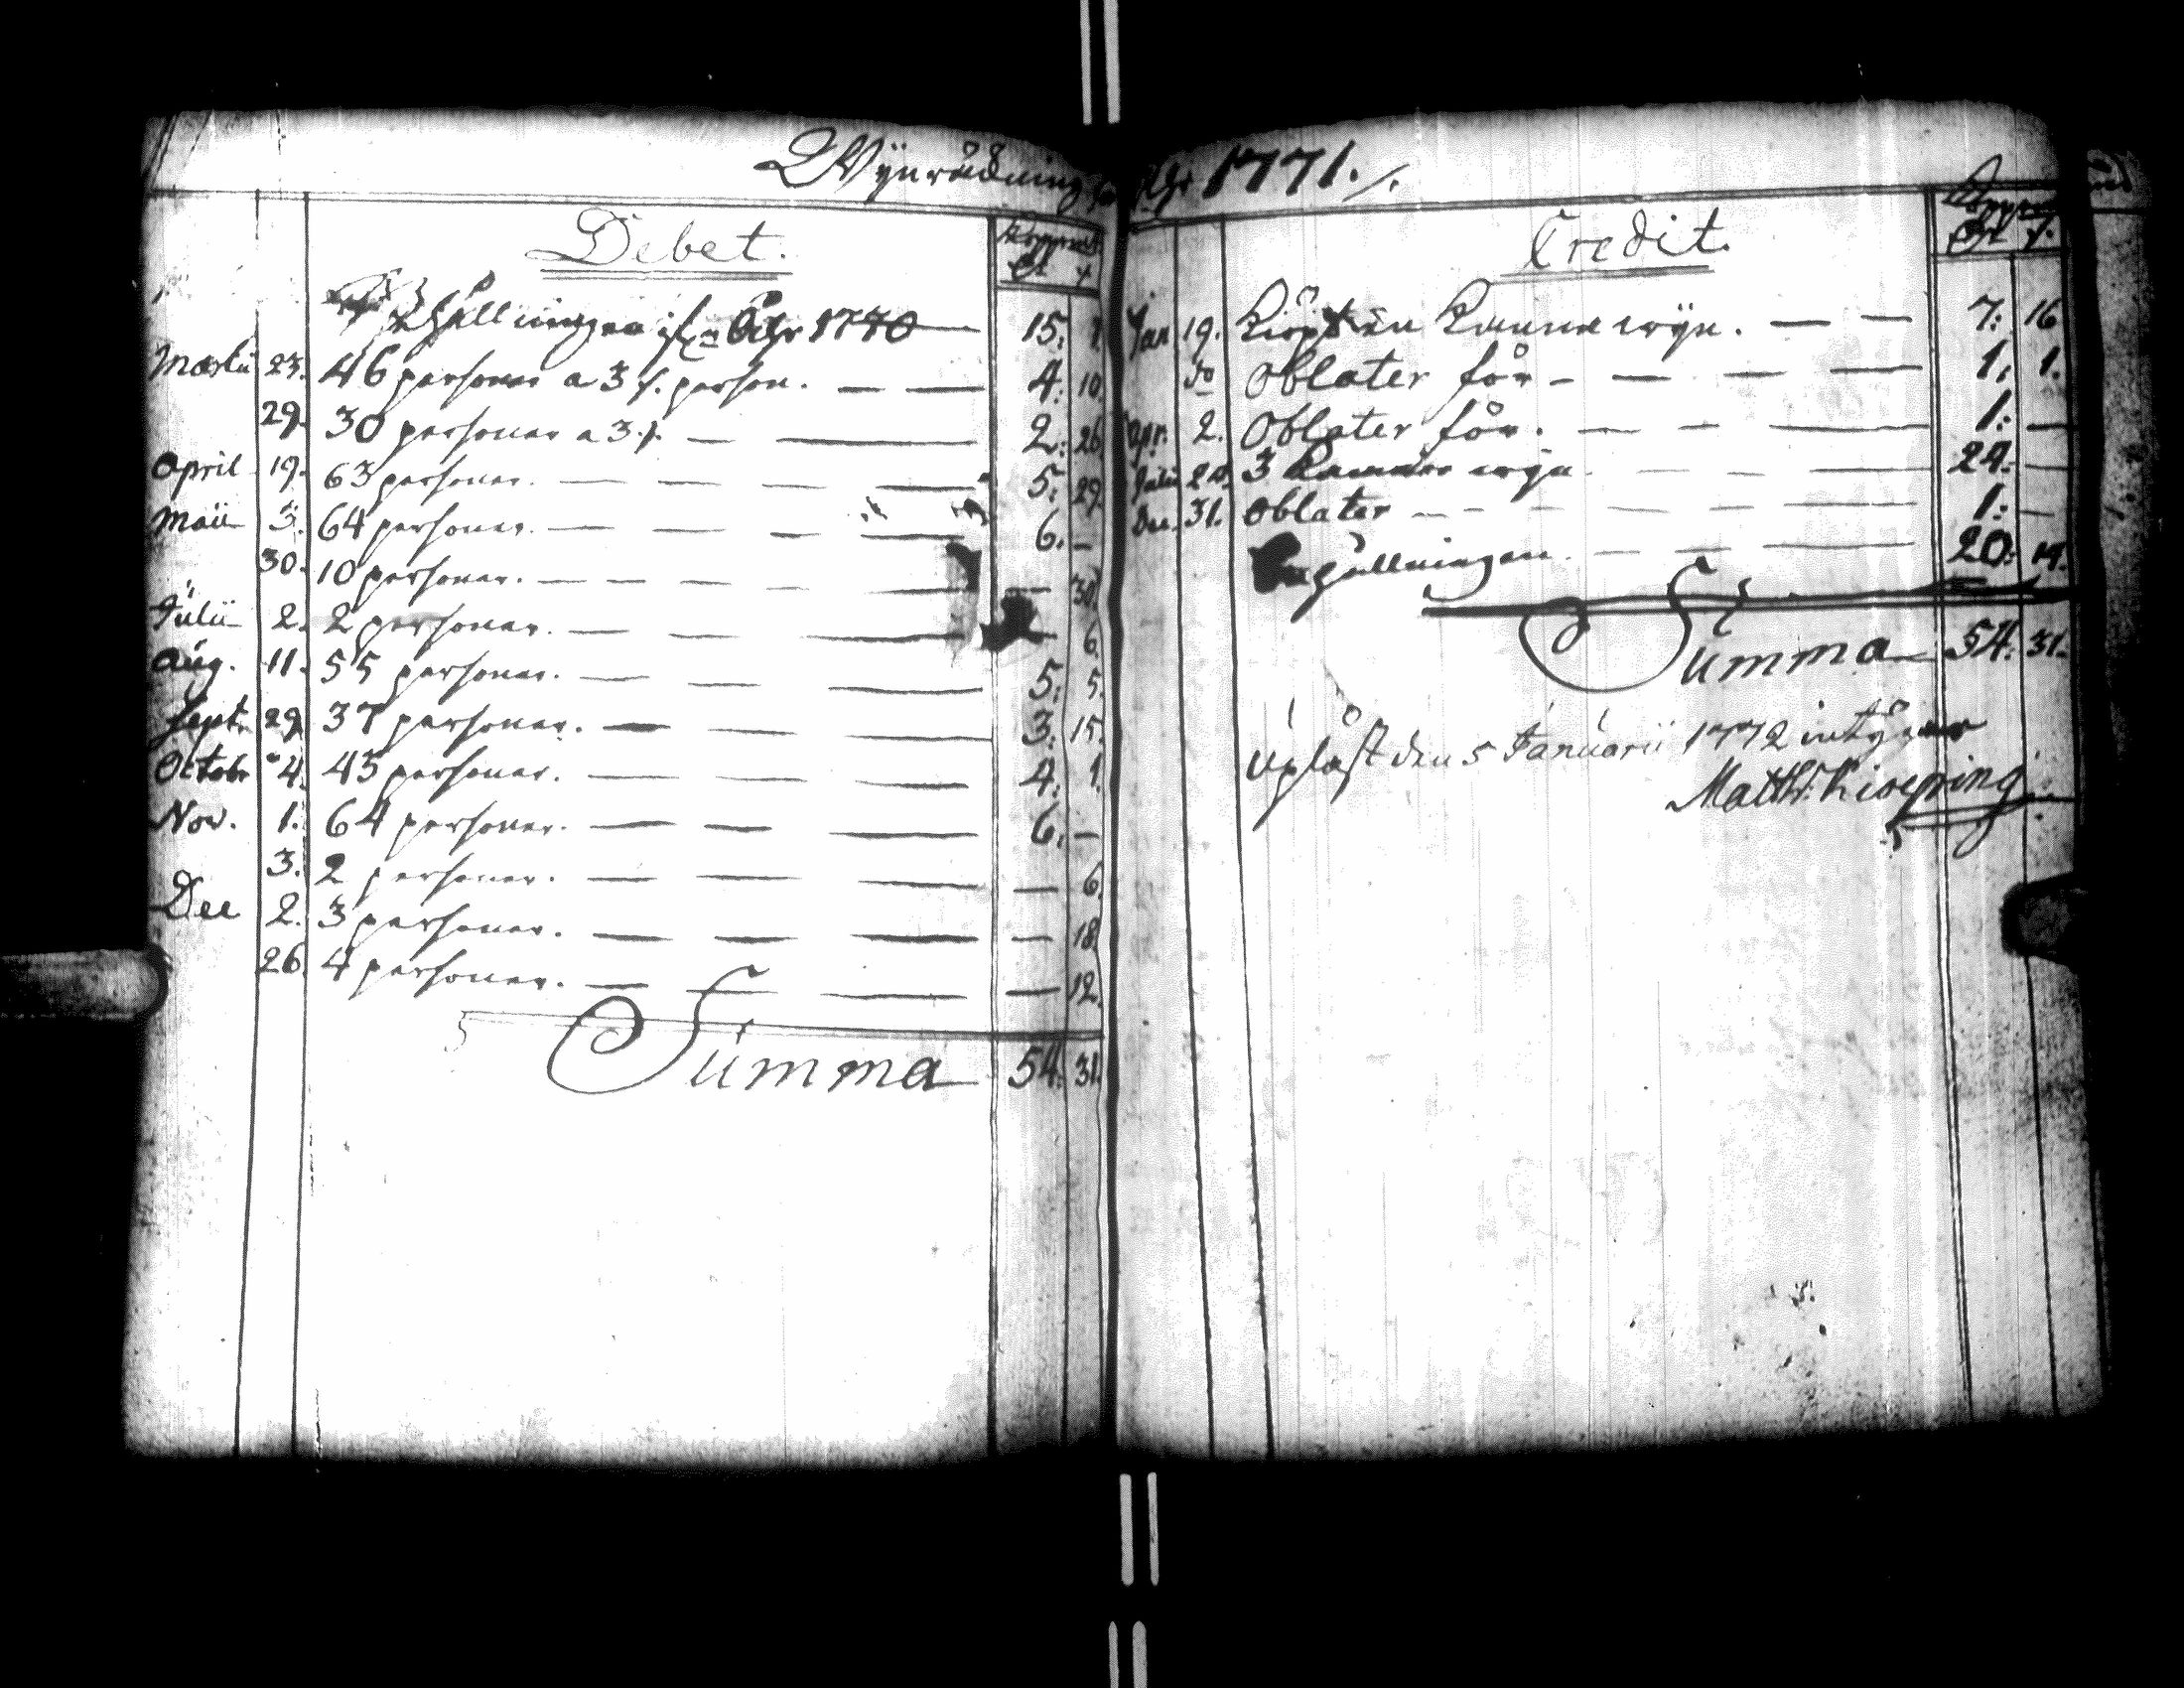 Wÿnräkning för Åhr 1771.
Debet.
Kopprmt
15: 1
Martii 23. 46 personer a 3 /. person. — — 4: 10
29. 30 personer a 3 /. — — 2: 26
April 19. 63 personer. — — — — 5: 29
Maii 3. 64 personer. — — — — 6. —
30. 10 personer. — — — — — 30.
Julii 2. 2 personer. — — — — — 6
Aug. 11. 55 personer. — — — 5: 5.
Sept. 29. 37 personer. — — — 3: 15.
Octobr 4. 43 personer. — — — 4: 1.
Nov. 1. 64 personer. — — — 6. —
3. 2 personer. — — — — 6
Dec 2. 3 personer. — — — — 18
26. 4 personer. — — — — 12.
Summa 54: 31.
Credit.
Jan 19. Kiöpt en Kanna wÿn. — — 7: 16
do Oblater för — — — — 1: 1.
Apr. 2. Oblater för. — — — 1: —
Julii 3 Kannor wÿn — — — 24: —
Dec. 31. Oblater — — — — 1: —
— — — 20: 14.
Summa 54: 31.
Upläst den 5 Januarii 1772 intÿgar